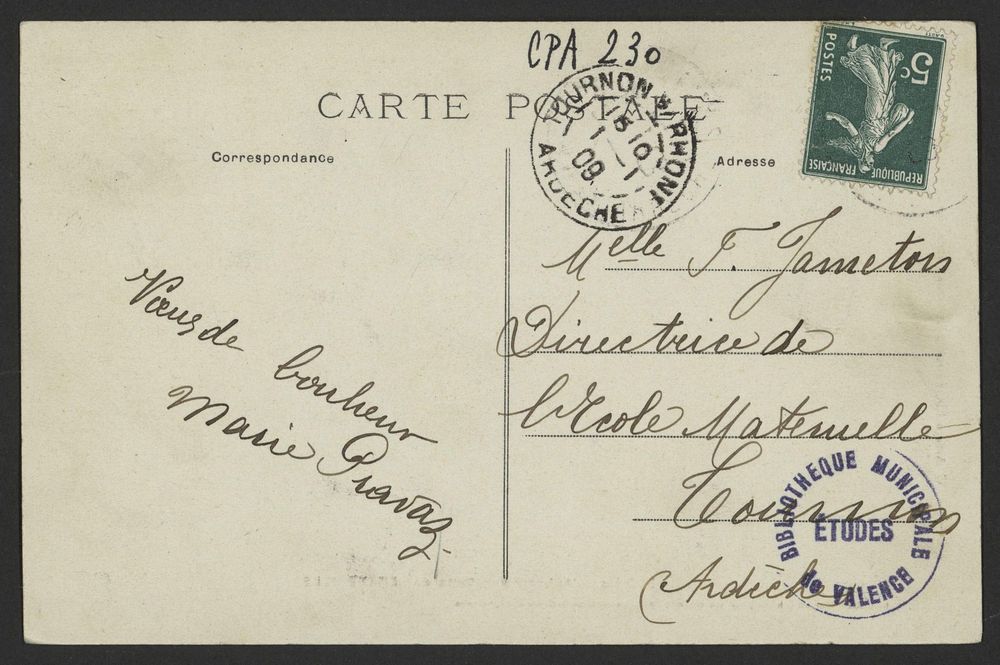 CPA 230
CARTE POSTALE
Correspondance
Adresse
TOURNON S. RHONE
ARDECHE
1
09
5C
POSTES
REPUBLIQUE FRANÇAISE
Vœux de
bonheur
Marie Pravaz
Melle F. Jameton
Directrice de
l'Ecole Maternelle
Tournon
Ardèche
BIBLIOTHEQUE MUNICIPALE
ÉTUDES
de VALENCE